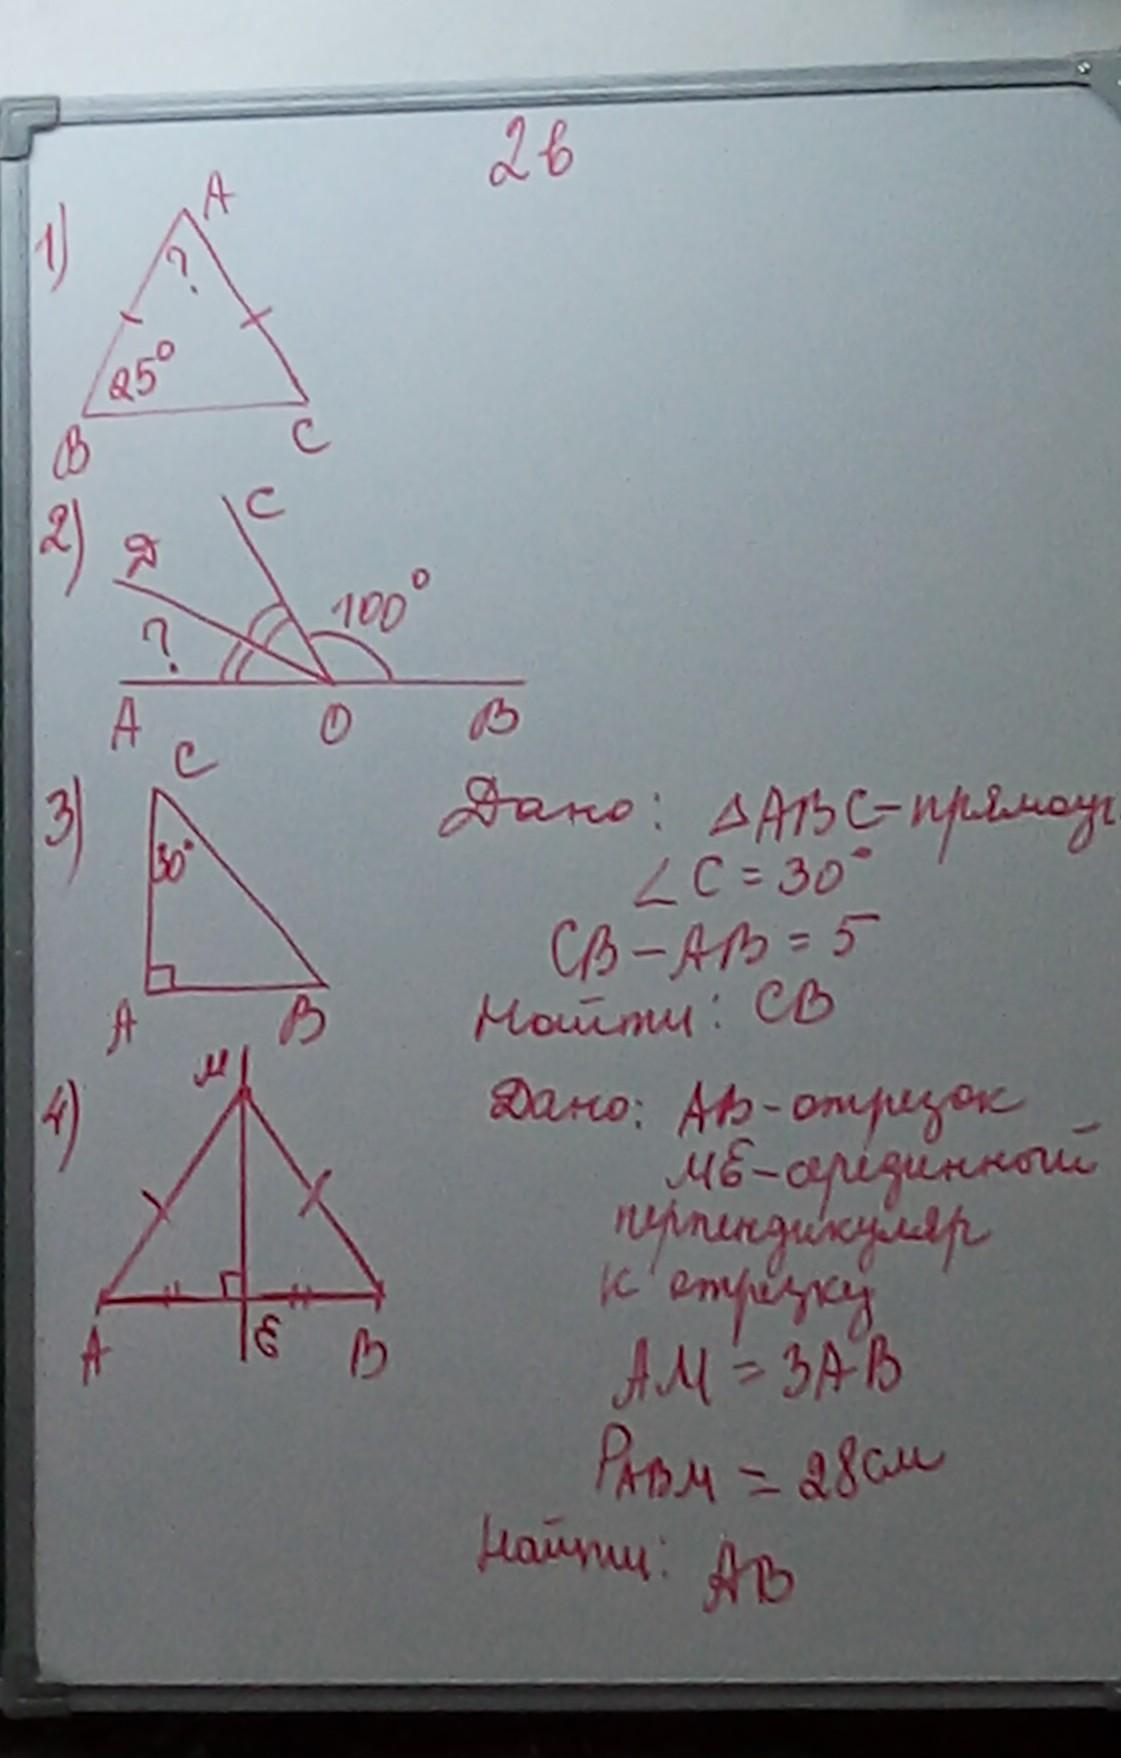 2в
1)
A
?
25°
B
C
2)
C
Д
100°
?
A
O
B
3)
C
30°
A
B
Дано: △ABC-прямоуг
∠C=30°
CB-AB=5
Найти: CB
4)
M
A
E
B
Дано: AB-отрезок
ME-серединный
перпендикуляр
к отрезку
AM=3AB
PABM=28см
Найти: AB